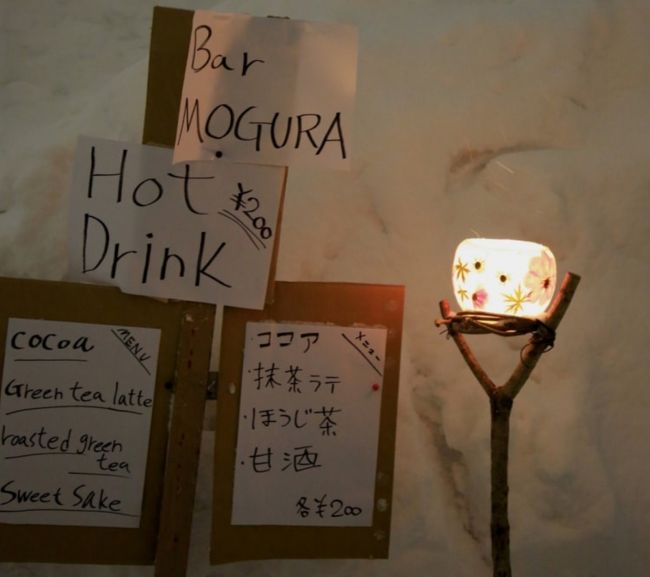 Bar
MOGURA
Hot
¥200
Drink
MENU
cocoa
Green tea latte
roasted green
tea
Sweet Sake
メニュー
・ココア
・抹茶ラテ
・ほうじ茶
・甘酒
各¥200